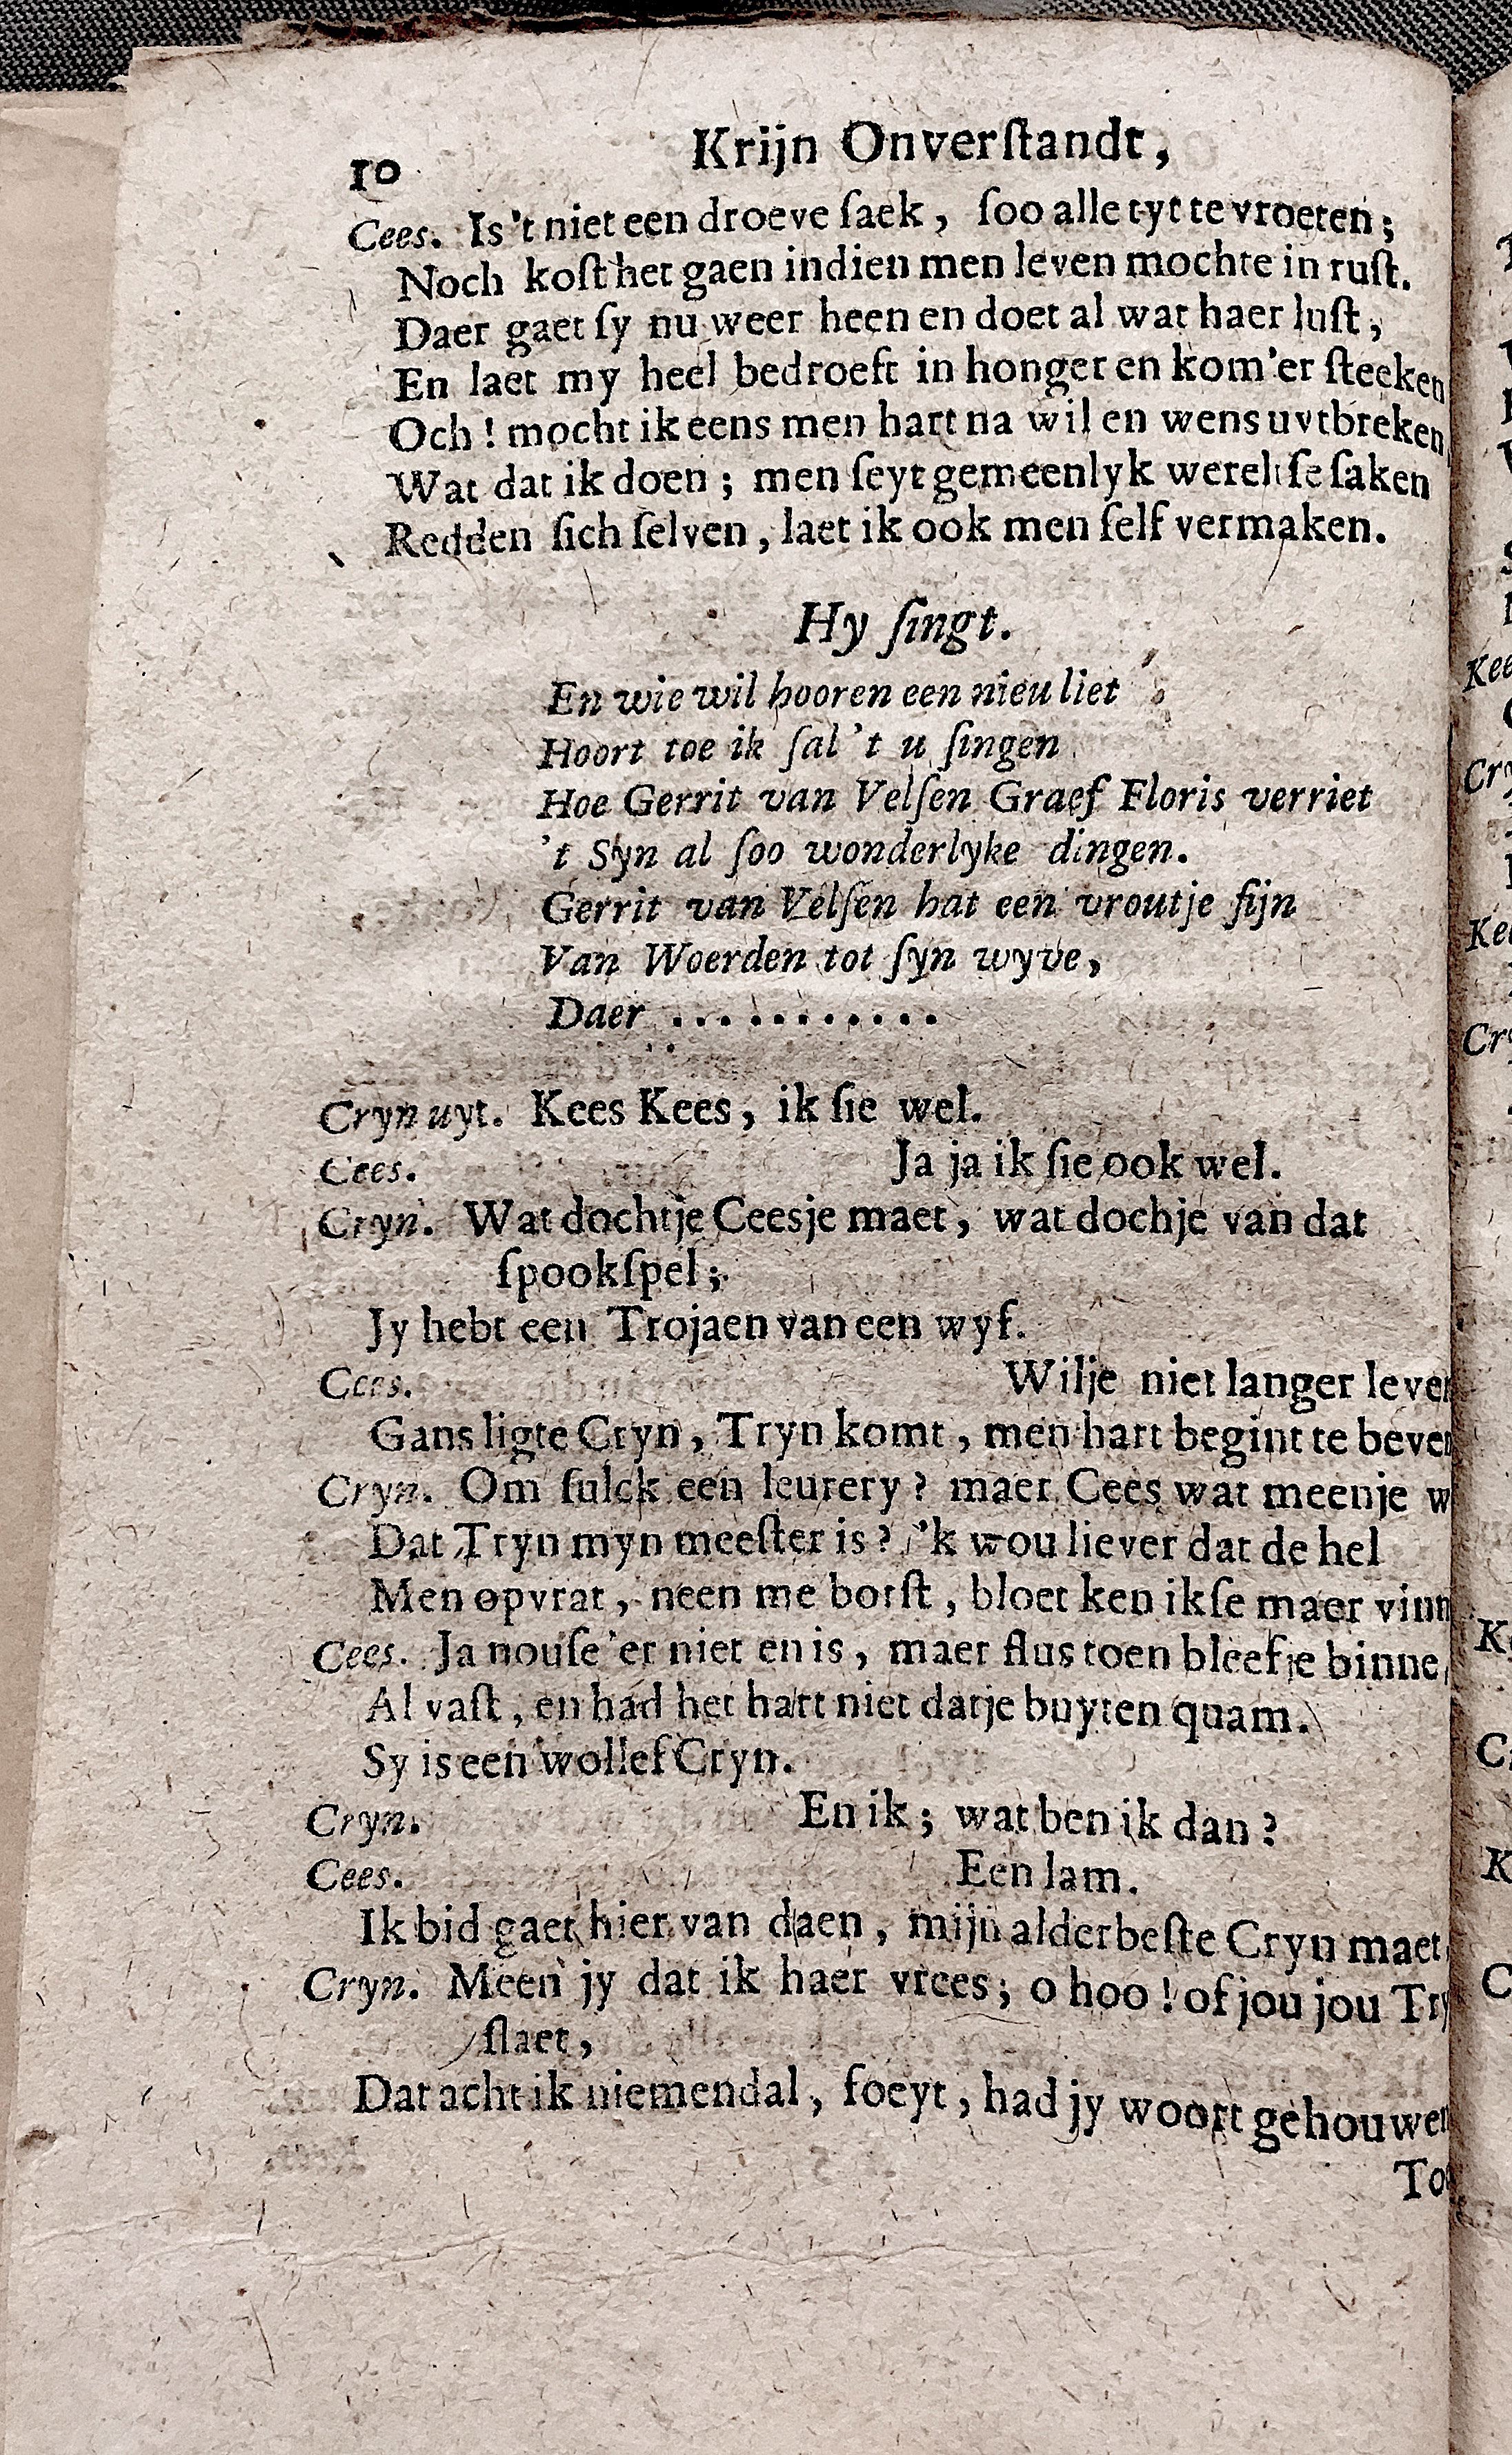 10 Krijn Onverſtandt,
Cees. Is 't niet een droeve ſaek, ſoo alle tyt te vroeten;
Noch koſt het gaen indien men leven mochte in ruſt.
Daer gaet ſy nu weer heen en doet al wat haer luſt,
En laet my heel bedroeft in honger en kom'er ſteeken
Och! mocht ik eens men hart na wil en wens uytbreken
Wat dat ik doen; men ſeyt gemeenlyk wereltſe ſaken
Redden ſich ſelven, laet ik ook men ſelf vermaken.
Hy ſingt.
En wie wil hooren een nieu liet
Hoort toe ik ſal 't u ſingen
Hoe Gerrit van Velſen Graef Floris verriet
't Syn al ſoo wonderlyke dingen.
Gerrit van Velſen hat een vroutje fijn
Van Woerden tot ſyn wyve,
Daer ...........
Cryn uyt. Kees Kees, ik ſie wel.
Cees. Ja ja ik ſie ook wel.
Cryn. Wat dochtje Ceesje maet, wat dochje van dat
ſpookſpel;
Jy hebt een Trojaen van een wyf.
Cees. Wilje niet langer leve
Gans ligte Cryn, Tryn komt, men hart begint te beve
Cryn. Om ſulck een leurery? maer Cees wat meenje w
Dat Tryn myn meeſter is? 'k wou liever dat de hel
Men opvrat, neen me borſt, bloet ken ikſe maer vinn
Cees. Ja nouſe'er niet en is, maer flus toen bleefje binne
Al vaſt, en had het hart niet datje buyten quam.
Sy is een wollef Cryn.
Cryn. En ik; wat ben ik dan?
Cees. Een lam.
Ik bid gaet hier van daen, mijn alderbeſte Cryn maet
Cryn. Meen jy dat ik haer vrees; o hoo! of jou jou Try
ſlaet,
Dat acht ik niemendal, foeyt, had jy woort gehouwe
To